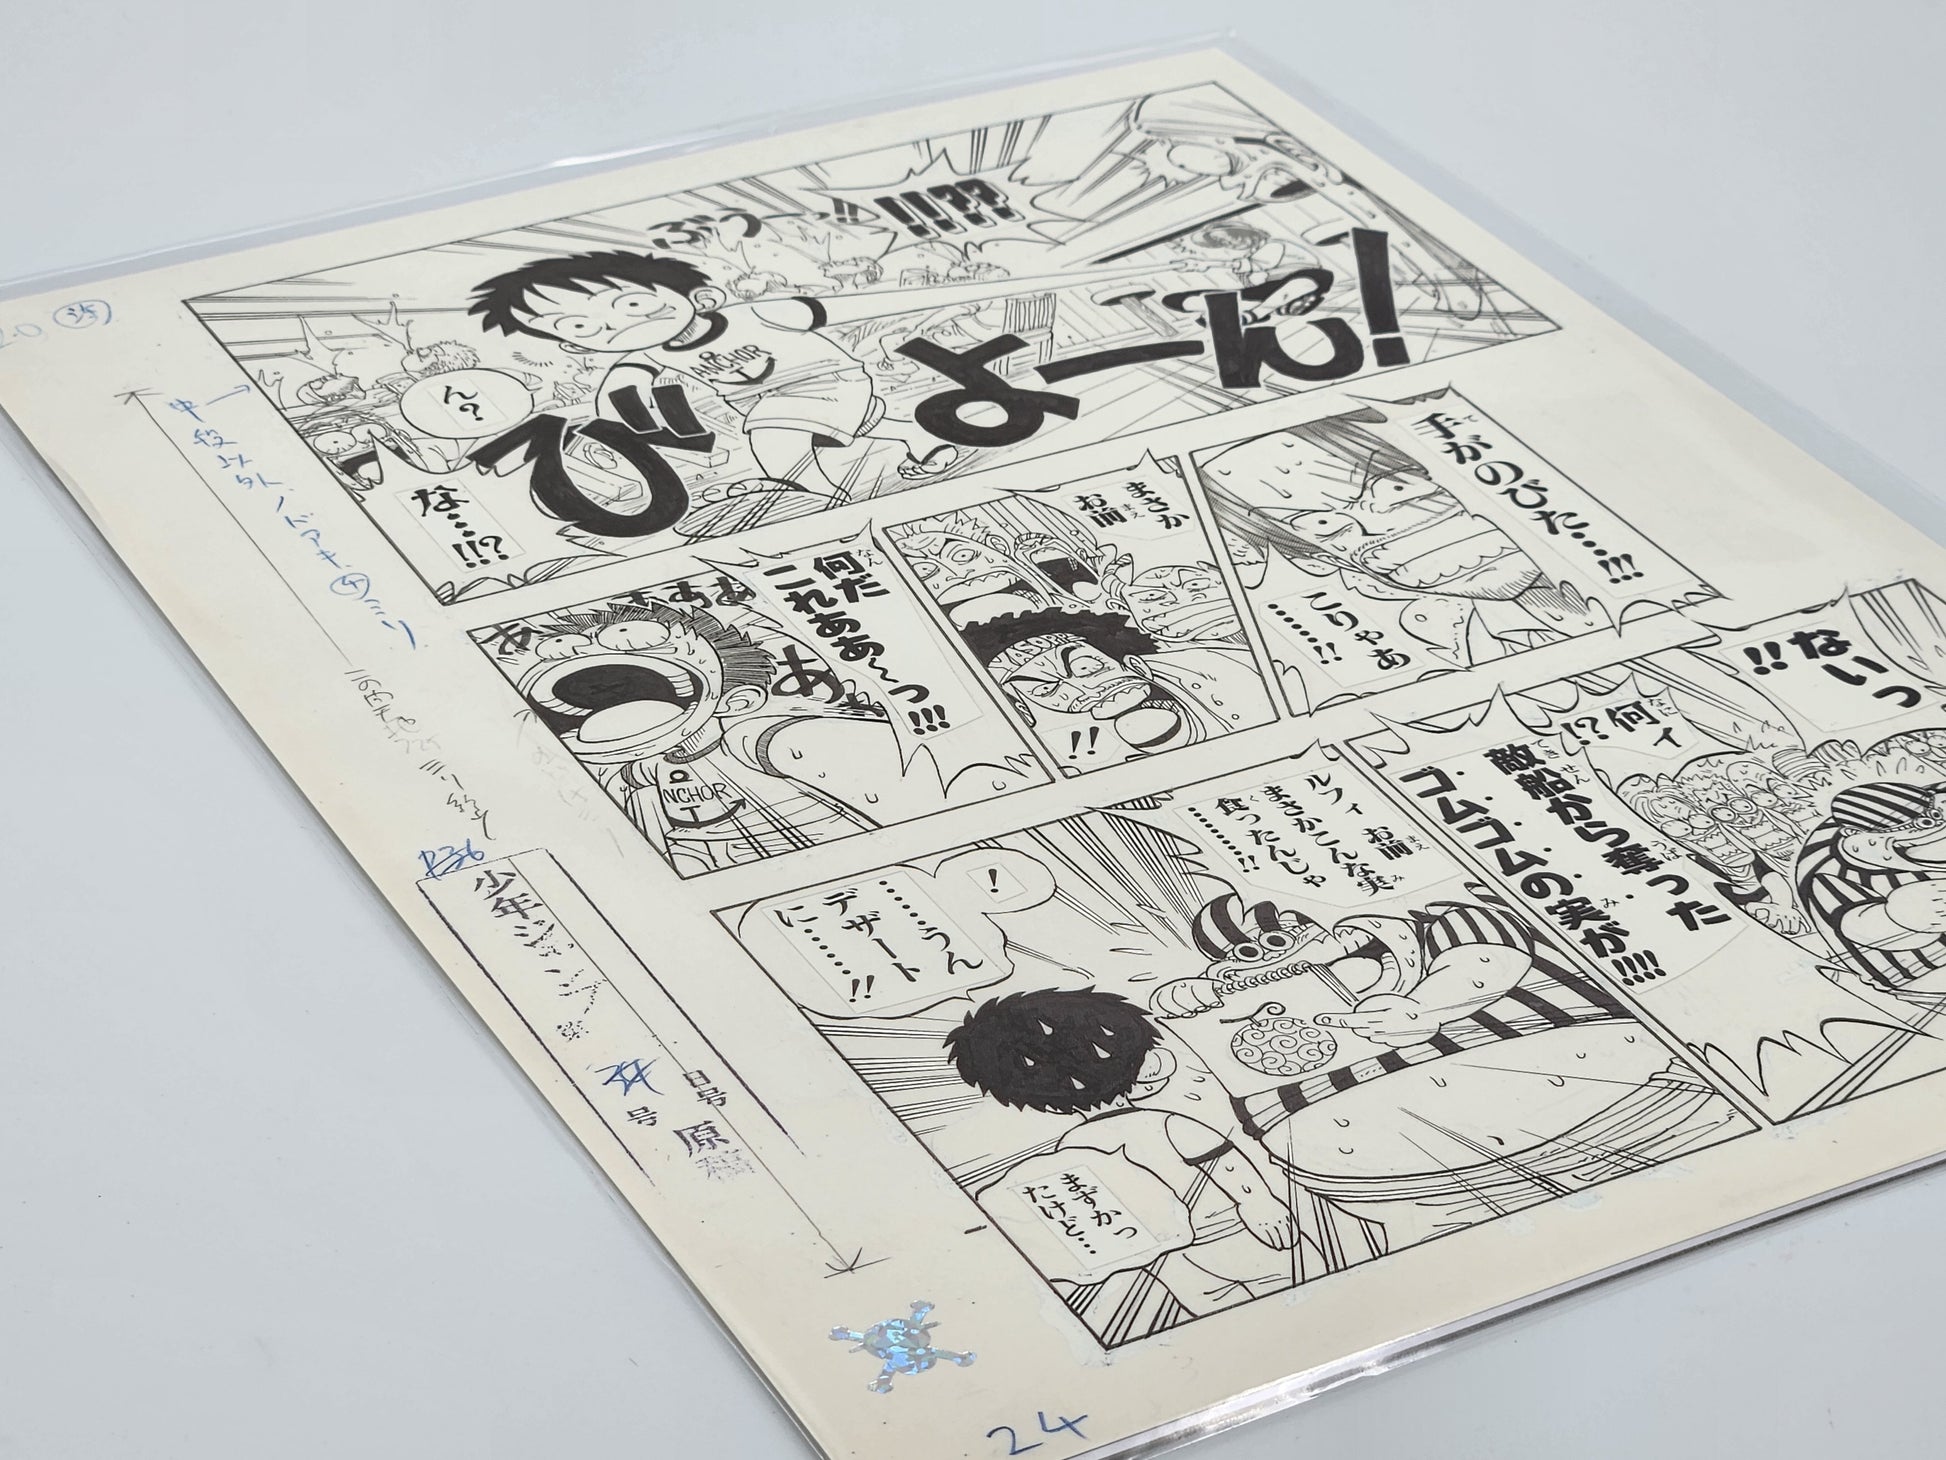 ぶうーっ!!
!!!??
びよーん!
ANCHOR
ん?
な…!!?
手がのびた…!!!
こりゃあ
……!!
まさか
お前
!!
YASOPP
何だ
これああ〜っ!!!
あ
ああああ
NCHOR
ないっ
!!
何ィ
!?
敵船から奪った
ゴムゴムの実が!!!!
ルフィ お前
まさかこんな実
食ったんじゃ
………!!
!
……うん
デザート
に……!!
まずかっ
たけど…
中段以外
少年ジャンプ
号
原稿
24